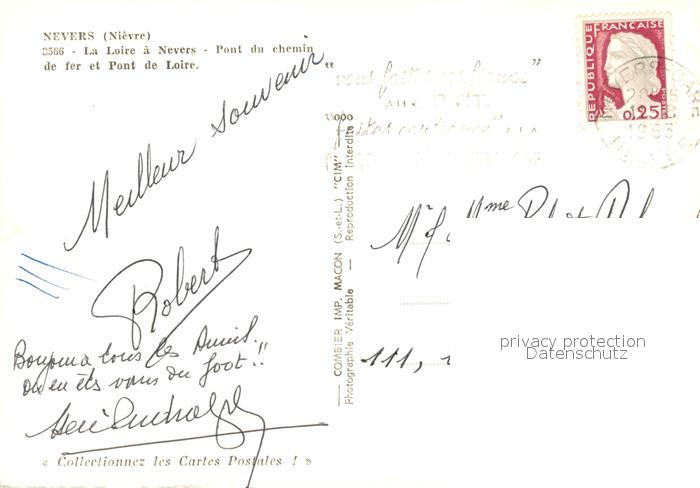 NEVERS (Nièvre)
3566 - La Loire à Nevers - Pont du chemin
de fer et Pont de Loire.
Meilleur souvenir
Robert
Bonjour a tous les Amis.
ou en êts vous du foot.!!
« Collectionnez les Cartes Postales ! »
COMBIER IMP. MACON (S.-et-L.) "CIM"
Photographie Véritable - Reproduction Interdite
"vous faites confiance"
AUX P.T.T.
faites confiance" A LA
REPUBLIQUE FRANÇAISE
POSTES
0,25
NEVERS GARE
NIEVRE
Mr & Mme
111,
privacy protection
Datenschutz